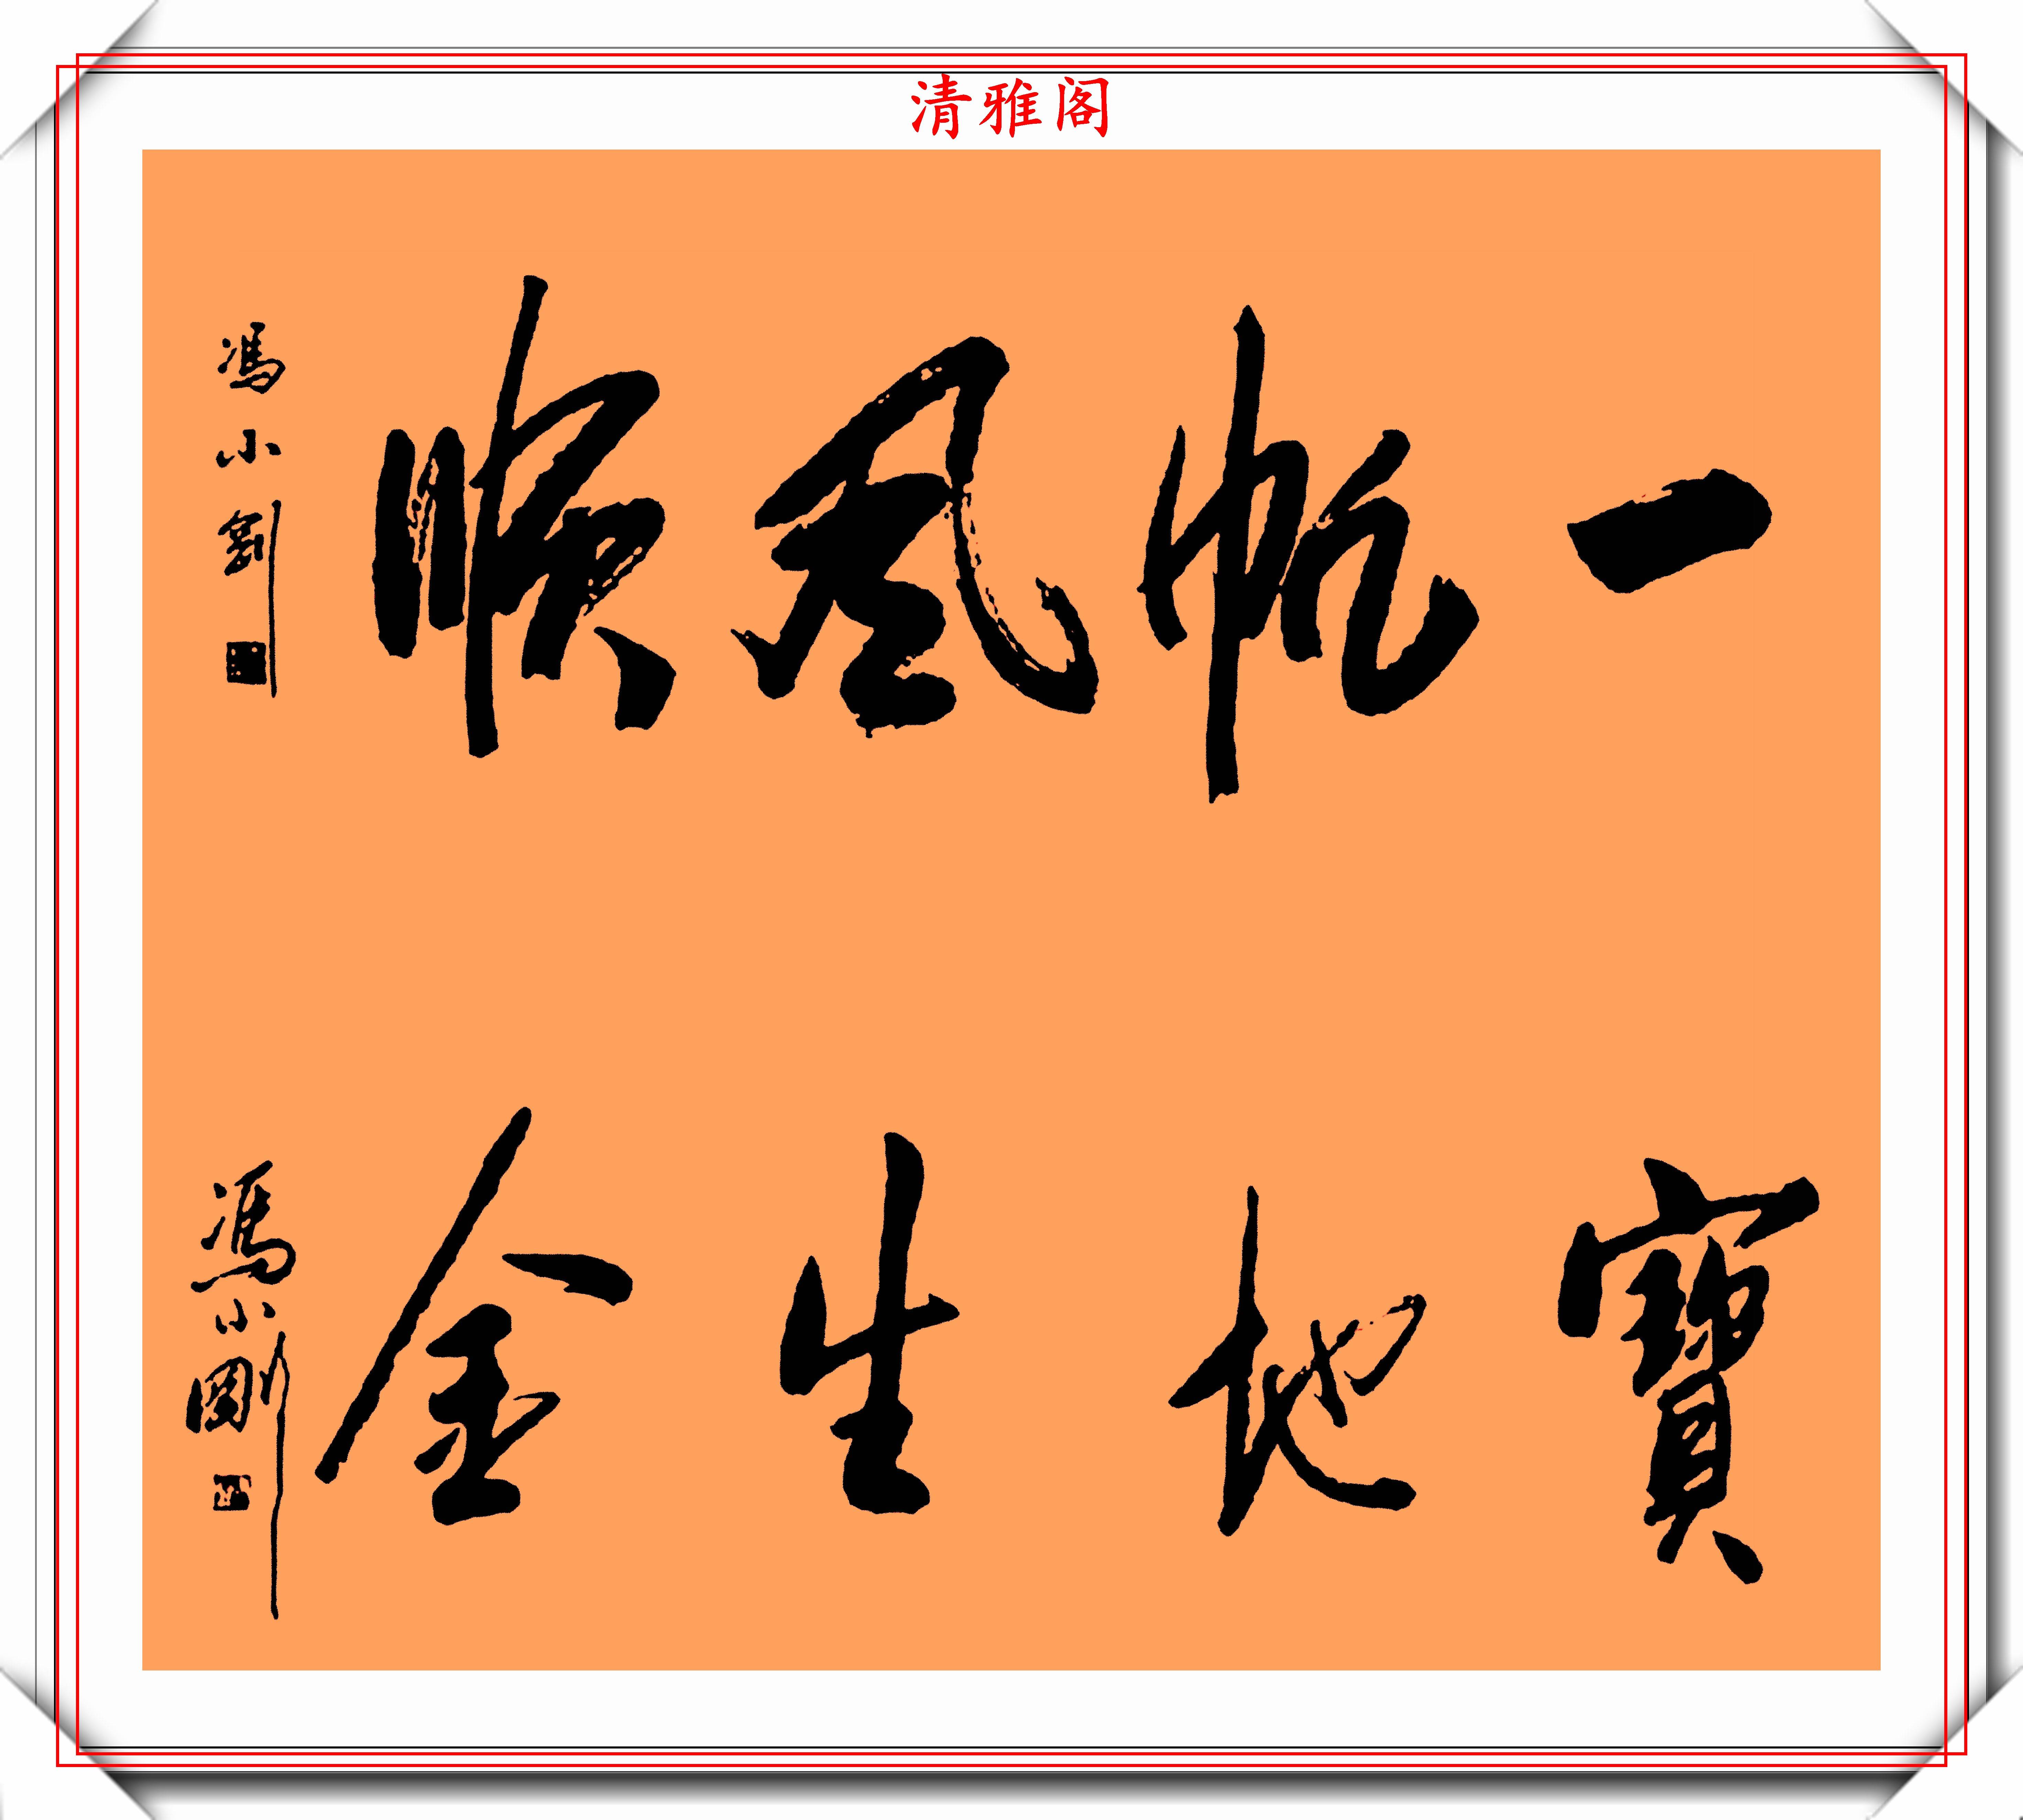 清雅阁
一帆風順
馮小剛
寶地生金
馮小剛